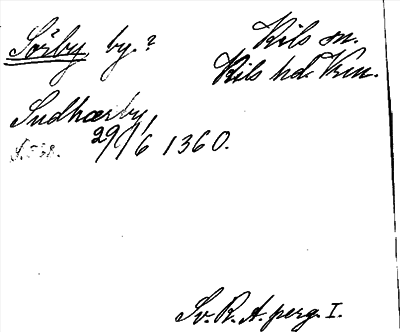 Sörby, by.?
Kils sn.
Kils hd. Vrm.
Sudhærby,
29/6 1360.
Sv. R. A. perg. I.